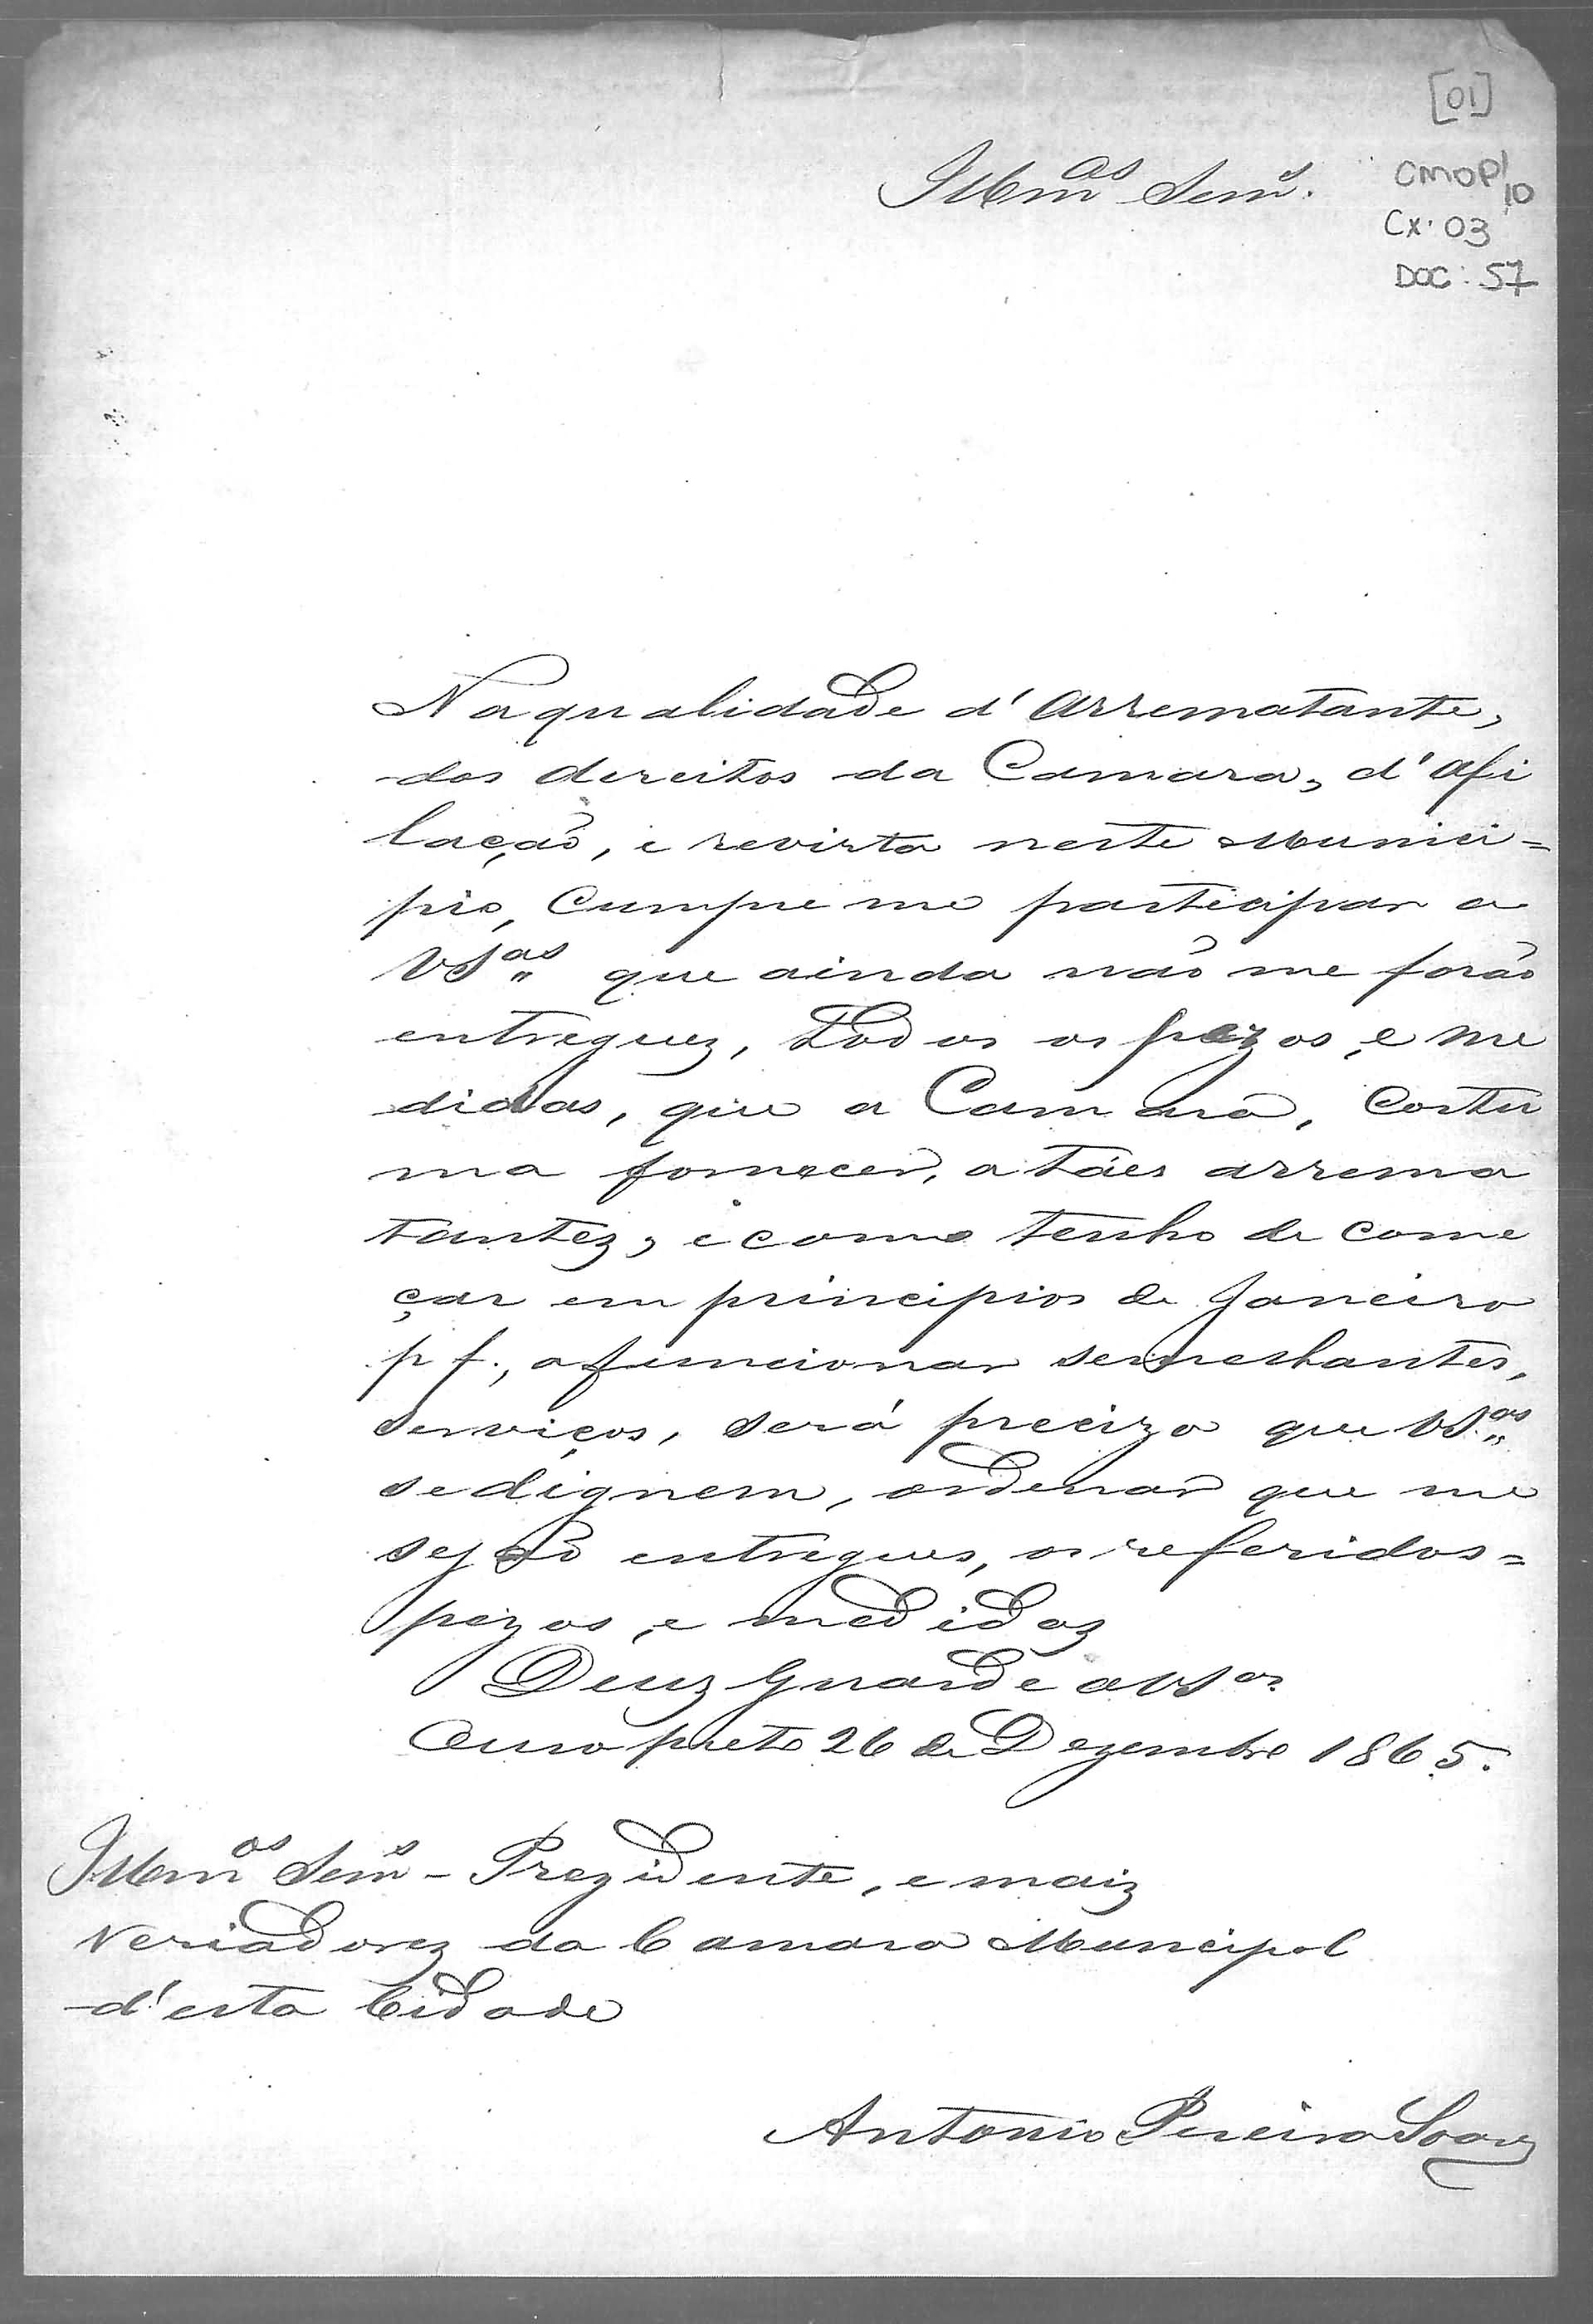 [01]
Illmos Senrs.
CMOP/10
Cx. 03
DOC: 57
Na qualidade d'Arrematante,
dos direitos da Camara, d'afi
lação, e revista neste Munici=
pio, Cumpre me participar a
VSas que ainda não me forão
entreguez, todos os pezos, e me
didas, que a Camara, Costu
ma fornecer, a táes arrema
tantez, e como tenho de come
çar em principios de Janeiro
p f., a funcionar semelhantes,
serviços, será precizo que VSas
se dignem, ordenar que me
sejão entregues, os referidos=
pezos, e medidaz
Deuz Guarde a VSas
Ouro preto 26 de Dezembro 1865.
Illmos Senrs - Prezidente, e maiz
Veriadorez da Camara Muncipal
d'esta Cidade
Antonio Pereira Soarez